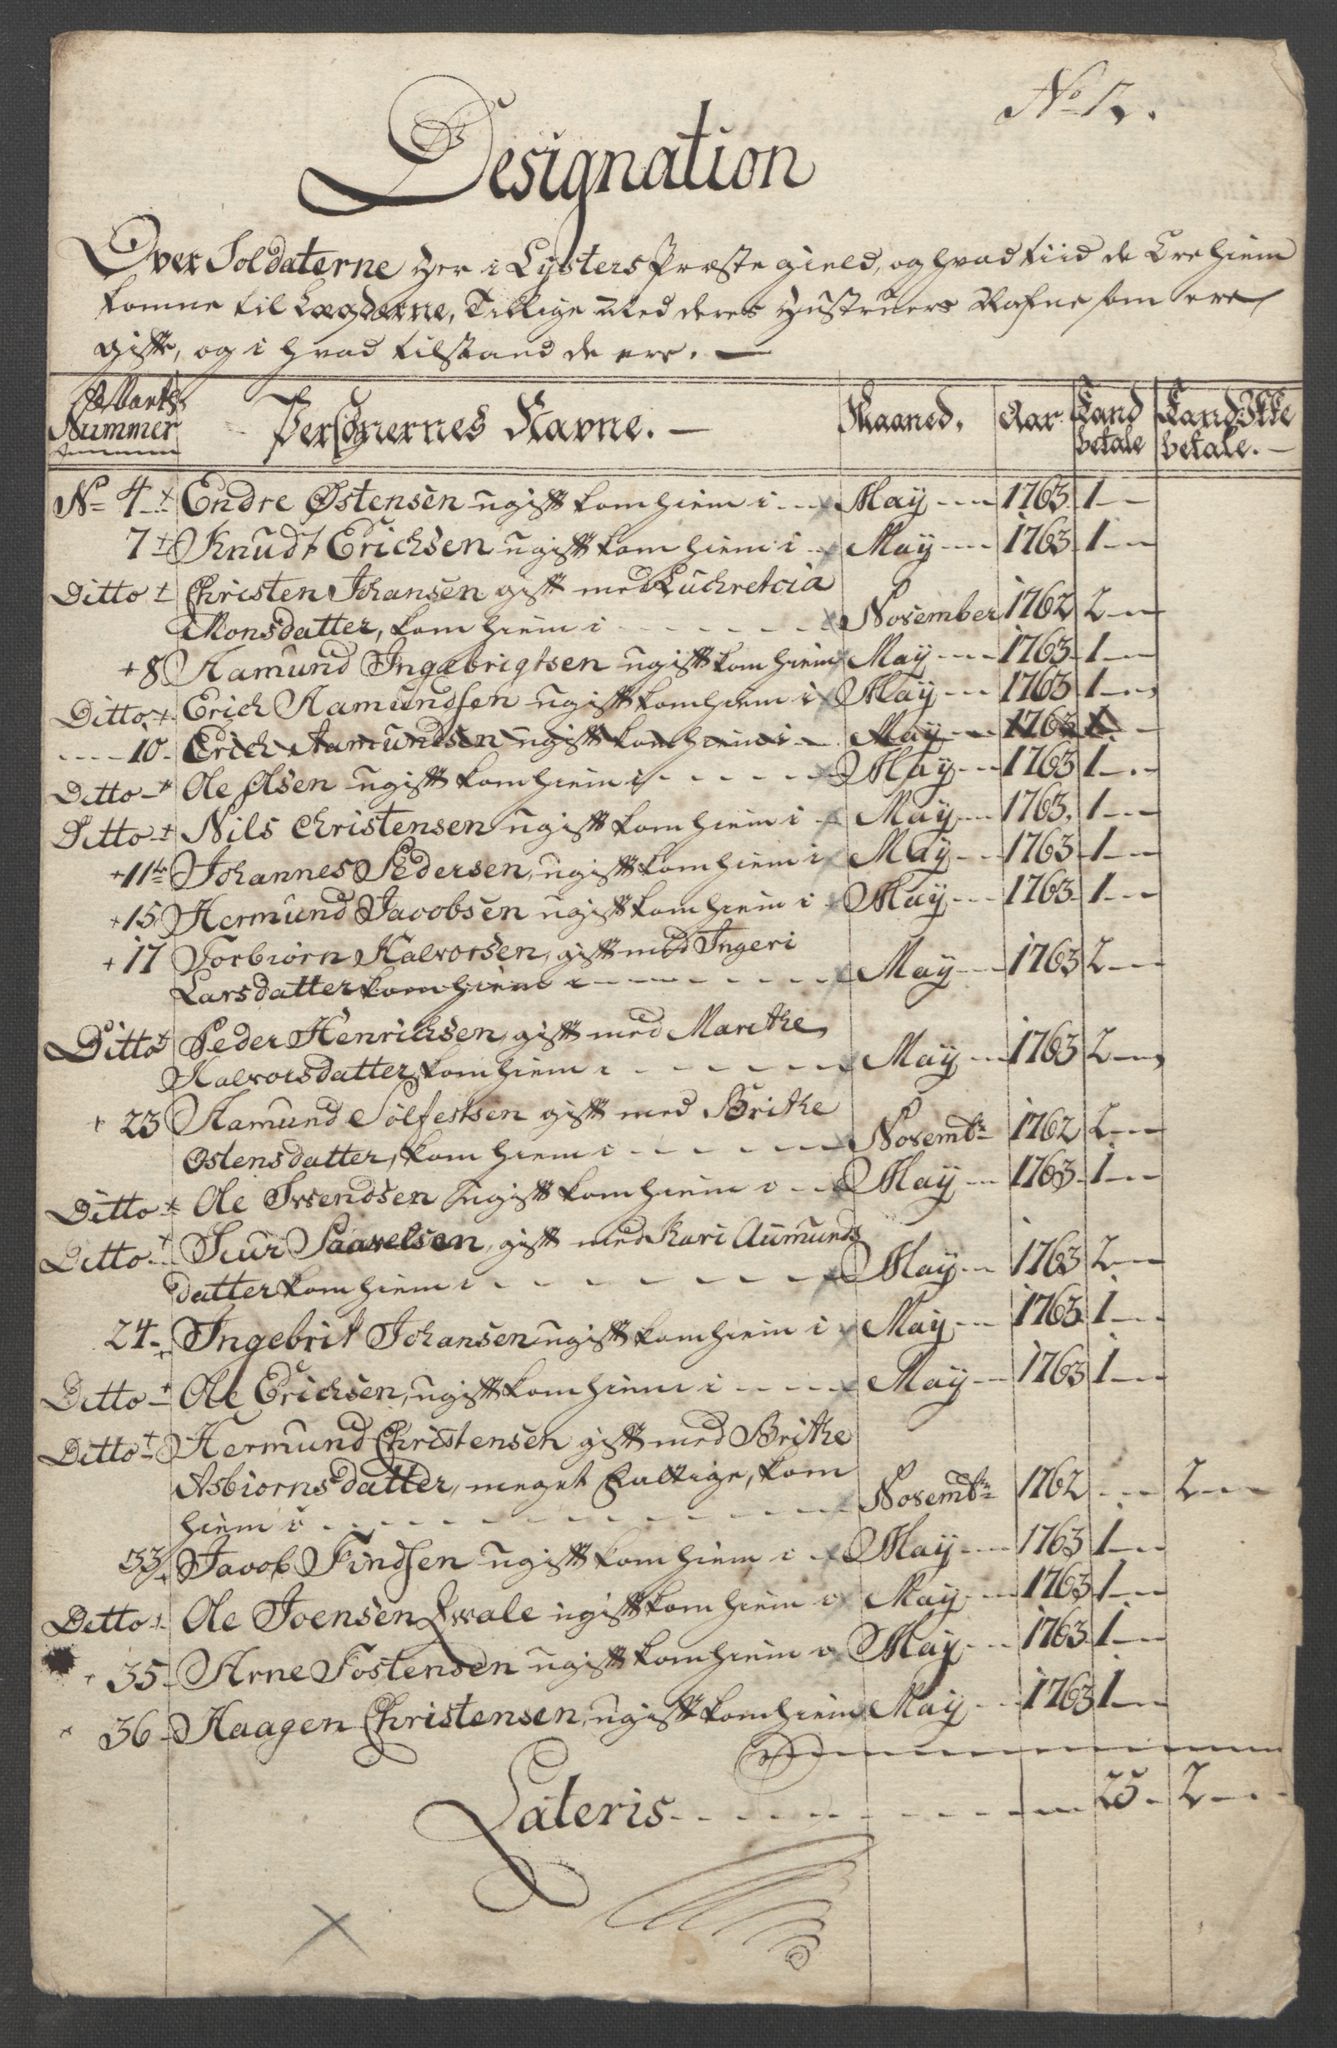 No 12.
Designation
Over Soldaterne her i Lysters Præste gield, og hvad tiid de Ere hiem
komne til Lægderne, Tillige Med deres Hustruers Nafne som ere
gifte, og i hvad tilstand de ere. —
Nummer Persohnernes Navne. — Maaned. Aar Kand betale Kand Ikke betale. —
No 4 + Endre Østensen ugift kom hiem i May 1763 1
7 + Knudt Erichsen ugift kom hiem i May 1763 1
Ditto + Christen Johansen gift med Luchretcia
Monsdatter, kom hiem i November 1762 2
+ 8 Aamund Ingebrigtsen ugift kom hiem May 1763 1
Ditto + Erich Aamundsen ugift kom hiem i May 1763 1
10 Erich Aamundsen ugift kom hiem i May 1763 1
Ditto + Ole Olsen ugift kom hiem i May 1763 1
Ditto + Nils Christensen ugift kom hiem i May 1763 1
+ 11 Johannes Pedersen, ugift kom hiem i May 1763 1
+ 15 Hermund Jacobsen ugift kom hiem i May 1763 1
+ 17 Torbiørn Halvorsen, gift med Ingeri
Larsdatter kom hiem i May 1763 2
Ditto + Peder Henrichsen, gift med Marethe
Halvorsdatter kom hiem i May 1763 2
+ 23 Aamund Sølfestsen gift med Brithe
Ostensdatter, kom hiem i Novembr 1762 2
Ditto + Ole Svendsen ugift kom hiem i May 1763 1
Ditto + Siur Paavelsen, gift med Kari Aumunds
datter kom hiem i May 1763 2
24 + Ingebrit Johansen ugift kom hiem i May 1763 1
Ditto + Ole Erichsen, ugift kom hiem i May 1763 1
Ditto + Hermund Christensen gift med Brithe
Asbiornsdatter, meget fattige, kom
hiem i Novembr 1762 2
33 + Jacob Findsen ugift kom hiem i May 1763 1
Ditto + Ole Joensen Qvale ugift kom hiem i May 1763 1
+ 35 Arne Tostensen ugift kom hiem i May 1763 1
+ 36 Haagen Christensen, ugift kom hiem May 1763 1
Lateris 25 2